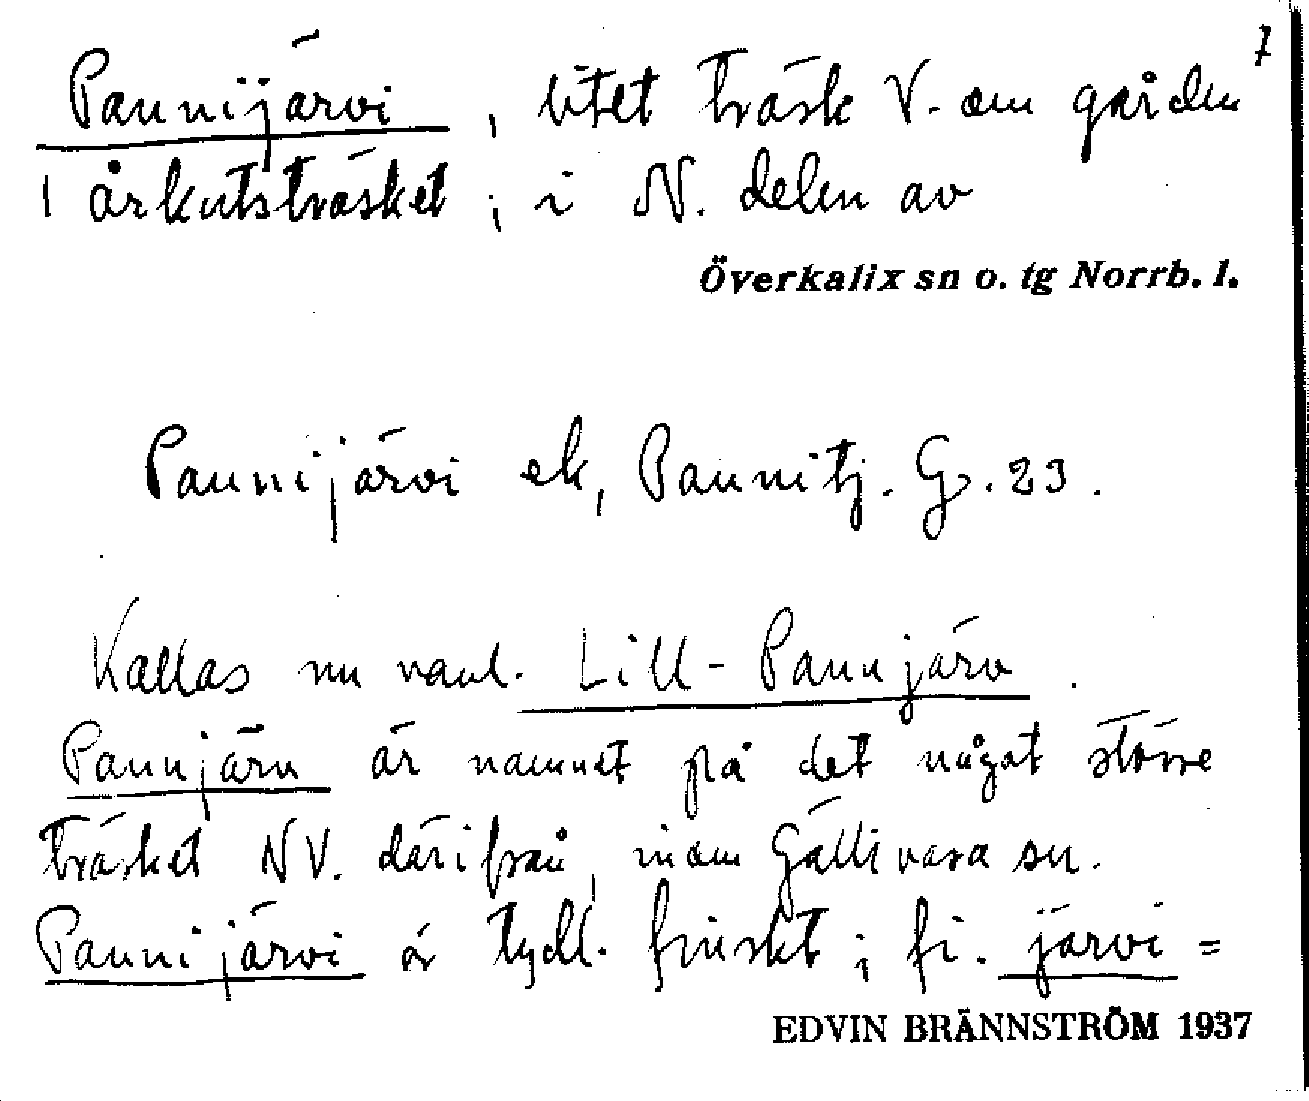 7
Paunijärvi, litet träsk V. om gården
i Årkutsträsket; i N. delen av
Överkalix sn o. tg Norrb. l.
Paunijärvi ek, Paunitj. G. 23.
Kallas nu vanl. Lill-Paunjärv.
Paunjärv är namnet på det något större
träsket NV. därifrån, inom Gällivara sn.
Paunijärvi är tydl. finskt; fi. järvi =
EDVIN BRÄNNSTRÖM 1937